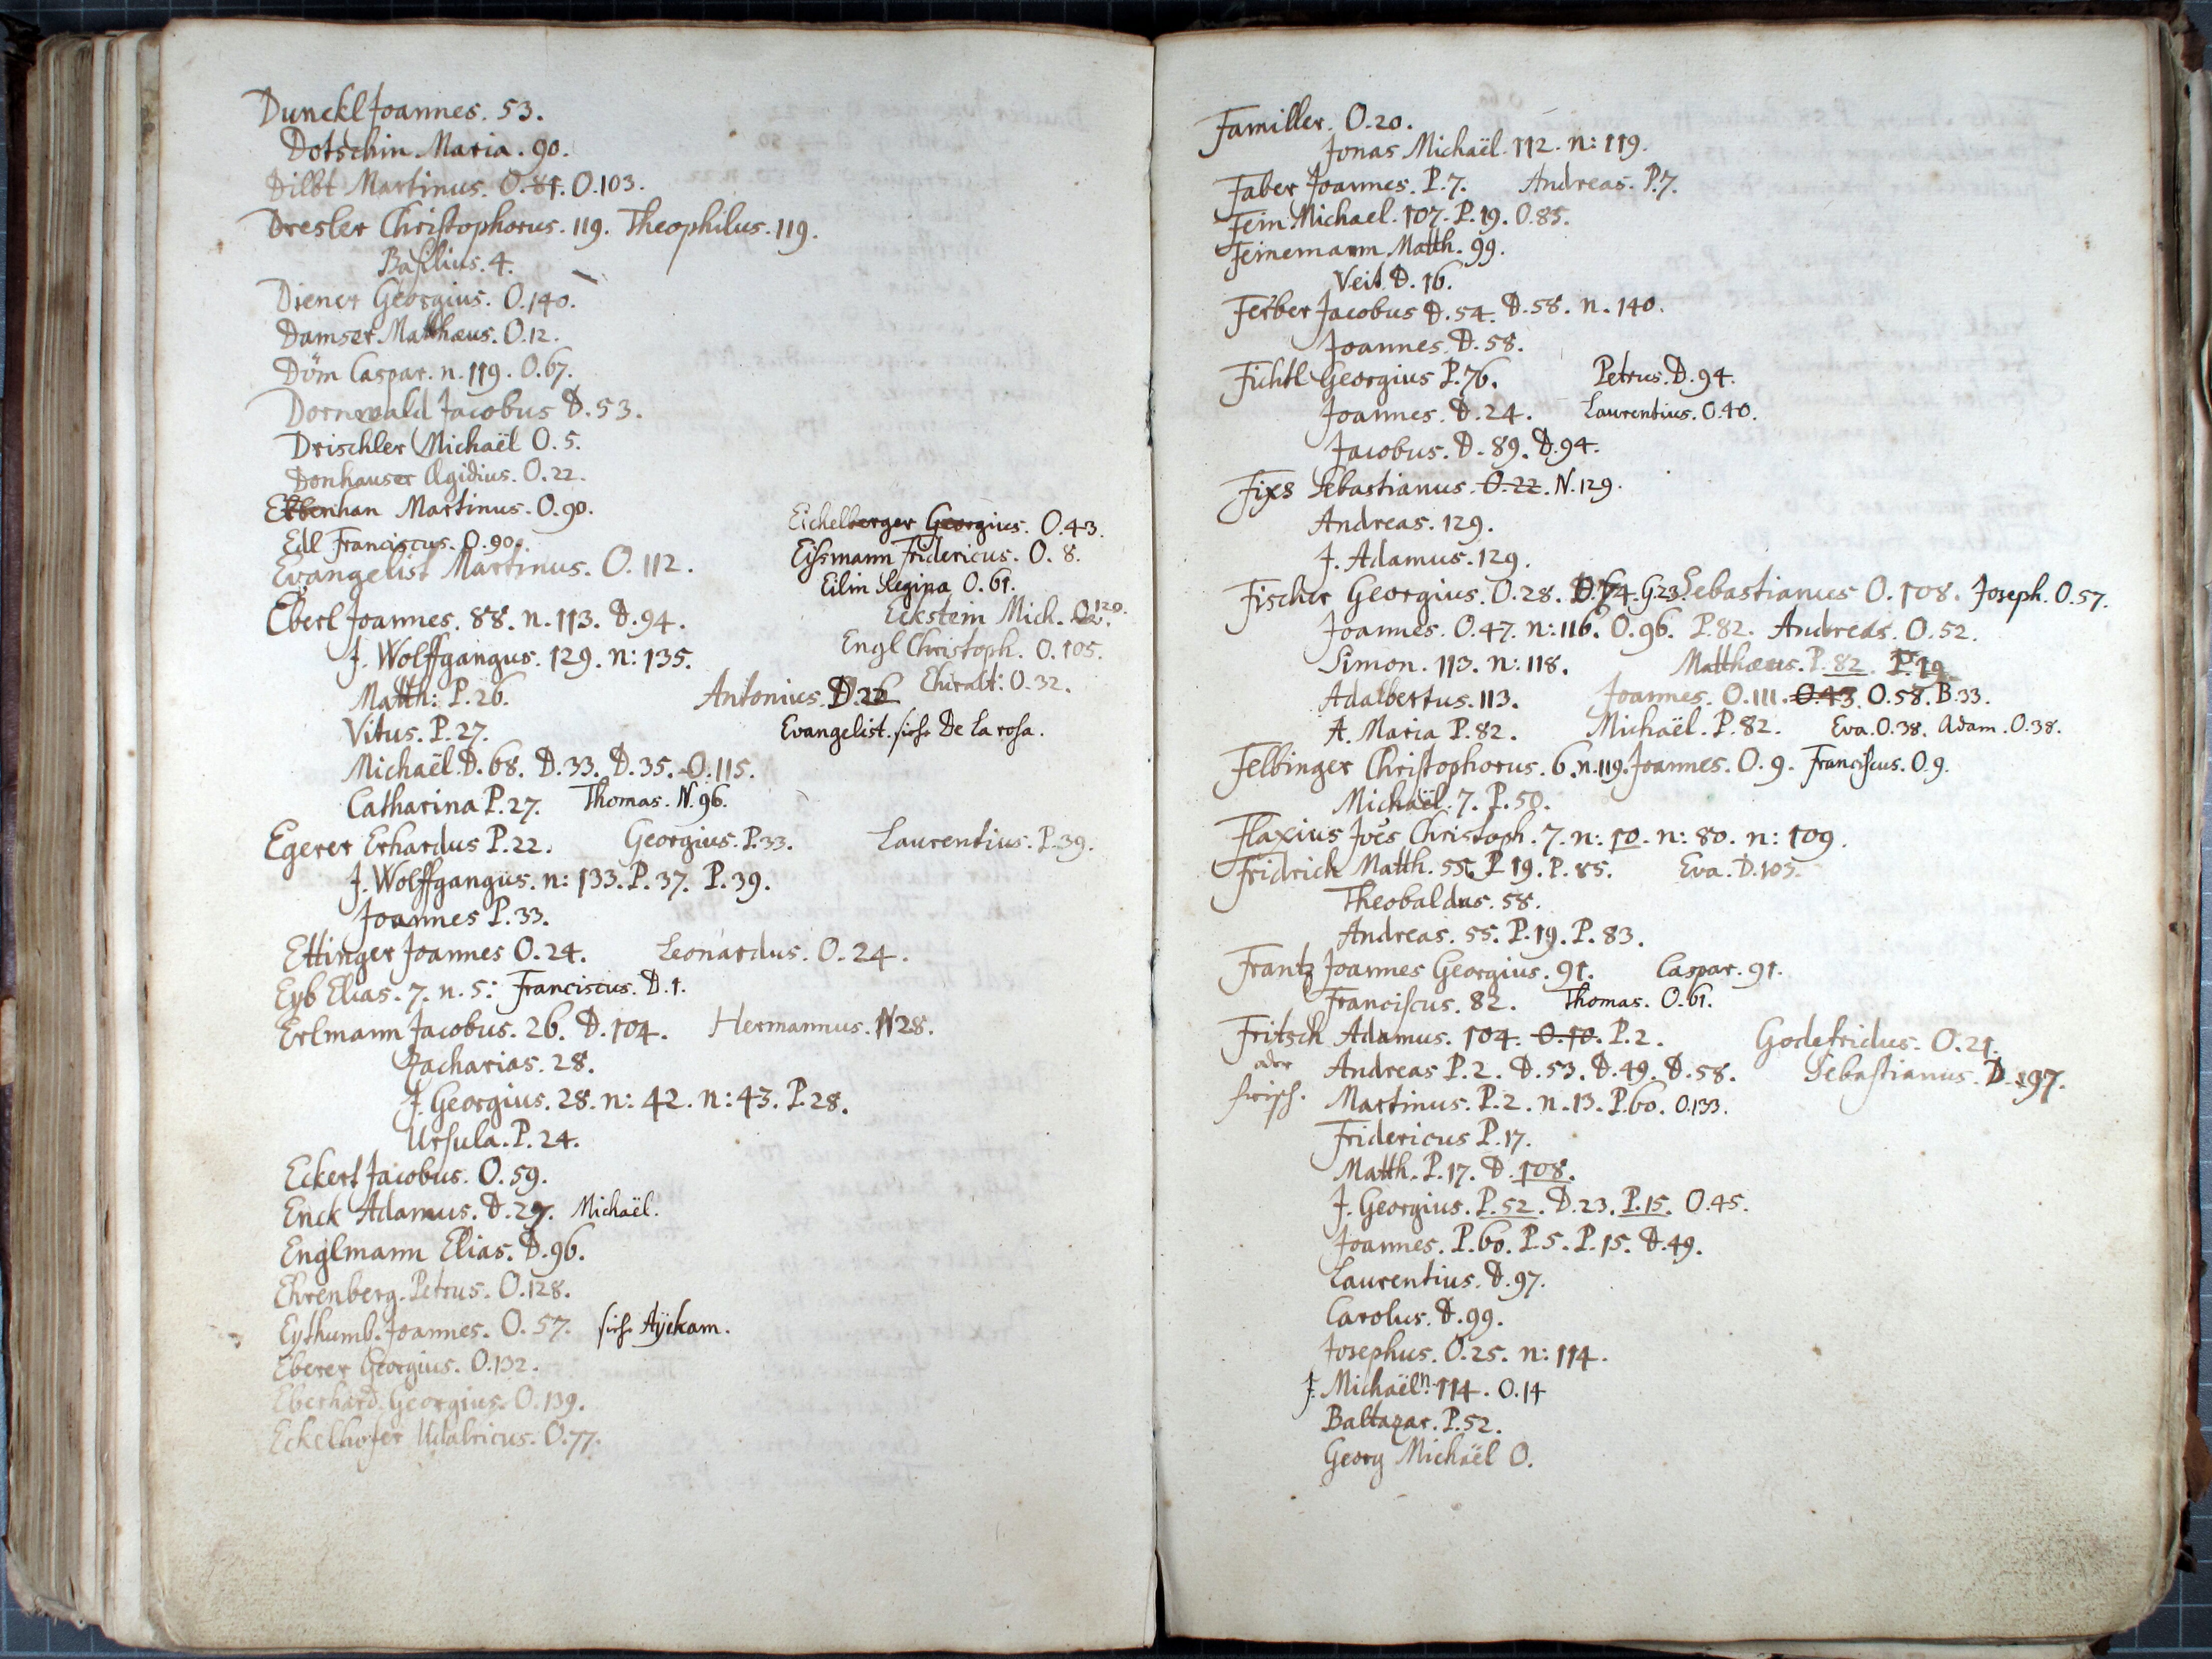 Dunckl Joannes. 53.
Dotschin Maria. 90.
Dilbt Martinus. O.81. O.103.
Dresler Christophorus. 119. Theophilus. 119.
Basilius. 4.
Diener Georgius. O.140.
Damser Matthæus. O.12.
Döm Caspar. n.119. O.67.
Dornwald Jacobus D.53.
Drischler Michaël O.5.
Donhauser Ægidius. O.22.
Martinus. O.90.
Edl Franciscus. O.90.
Evangelist Martinus. O.112.
Eberl Joannes. 88. n.113. D.94.
J. Wolffgangus. 129. n: 135.
Matth: P.26. Antonius.
Vitus. P.27.
Michaël D.68. D.33. D.35. O.115.
Catharina P.27. Thomas. N.96.
Eichelberger Georgius. O.43.
Eissmann Fridericus. O. 8.
Eilin Regina O.61.
Eckstein Mich. O.120.
Engl Christoph. O.105.
O.32.
Evangelist. sihe De La rosa.
Egerer Erhardus P.22. Georgius. P.33. Laurentius. P.39.
J. Wolffgangus. n: 133. P.37. P.39.
Joannes P.33.
Ettinger Joannes O.24. Leonardus. O.24.
Eyb Elias. 7. n. 5: Franciscus. D.1.
Erlmann Jacobus. 26. D.104. Hermannus. N28.
Zacharias. 28.
J. Georgius. 28. n: 42. n: 43. P.28.
Ursula. P.24.
Eckert Jacobus. O.59.
Enck Adamus. D.27. Michaël.
Englmann Elias. D.96.
Ehrenberg. Petrus. O.128.
Eythumb. Joannes. O.57. sihe Aÿckam.
Eberer Georgius. O.132.
Eberhard Georgius. O.139.
Eckelhofer Udalricus. O.77.
Familler. O.20.
Jonas Michaël. 112. n: 119.
Faber Joannes. P.7. Andreas. P.7.
Fein Michael. 107. P.19. O.85.
Feinemann Matth. 99.
Veit. D.16.
Ferber Jacobus D.54. D.58. n.140.
Joannes. D.58.
Fichtl Georgius P.76. Petrus. D.94.
Joannes. D.24. Laurentius. O.40.
Jacobus. D.89. D.94.
Fixs Sebastianus. O.22. N.129.
Andreas. 129.
J. Adamus. 129.
Fischer Georgius. O.28. G.23. Sebastianus O.108. Joseph. O.57.
Joannes. O.47. n: 116. O.96. P.82. Andreas. O.52.
Simon. 113. n: 118. Matthæus. P.82. P.19
Adalbertus. 113. Joannes. O.111. O.43. O.58. B.33.
A. Maria P.82. Michaël. P.82. Eva. O.38. Adam. O.38.
Felbinger Christophorus. 6. n.119. Joannes. O.9. Franciscus. O.9.
Michaël. 7. P.50.
Flaxius Joes Christoph. 7. n: 10. n: 80. n: 109.
Fridrich Matth. 55. P 19. P.85. Eva. D.105.
Theobaldus. 58.
Andreas. 55. P.19. P.83.
Frantz Joannes Georgius. 91. Caspar. 91.
Franciscus. 82. Thomas. O.61.
Fritsch Adamus. 104. O.10. P.2. Godefridus. O.21.
oder Andreas P.2. D.53. D.49. D.58. Sebastianus. D.97.
frisch. Martinus. P.2. n.13. P.60. O.133.
Fridericus P.17.
Matth. P.17. D.108.
J. Georgius. P.52. D.23. P.15. O.45.
Joannes. P.60. P.5. P.15. D.49.
Laurentius. D.97.
Carolus. D.99.
Josephus. O.25. n: 114.
J. Michaël n. 114. O.14
Baltazar. P.52.
Georg Michaël O.